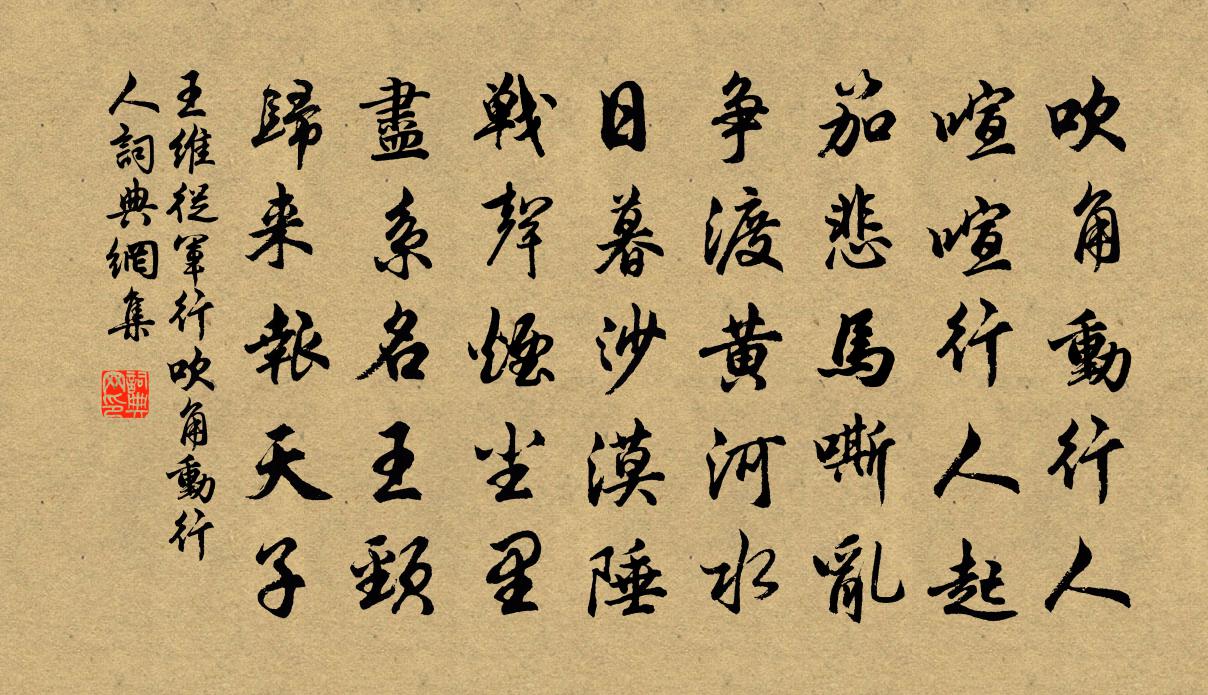 吹角動行人
喧喧行人起
笳悲馬嘶亂
爭渡黃河水
日暮沙漠陲
戰聲煙塵里
盡系名王頸
歸来報天子
王維從軍行吹角動行
人詞典網集
詞典
网印